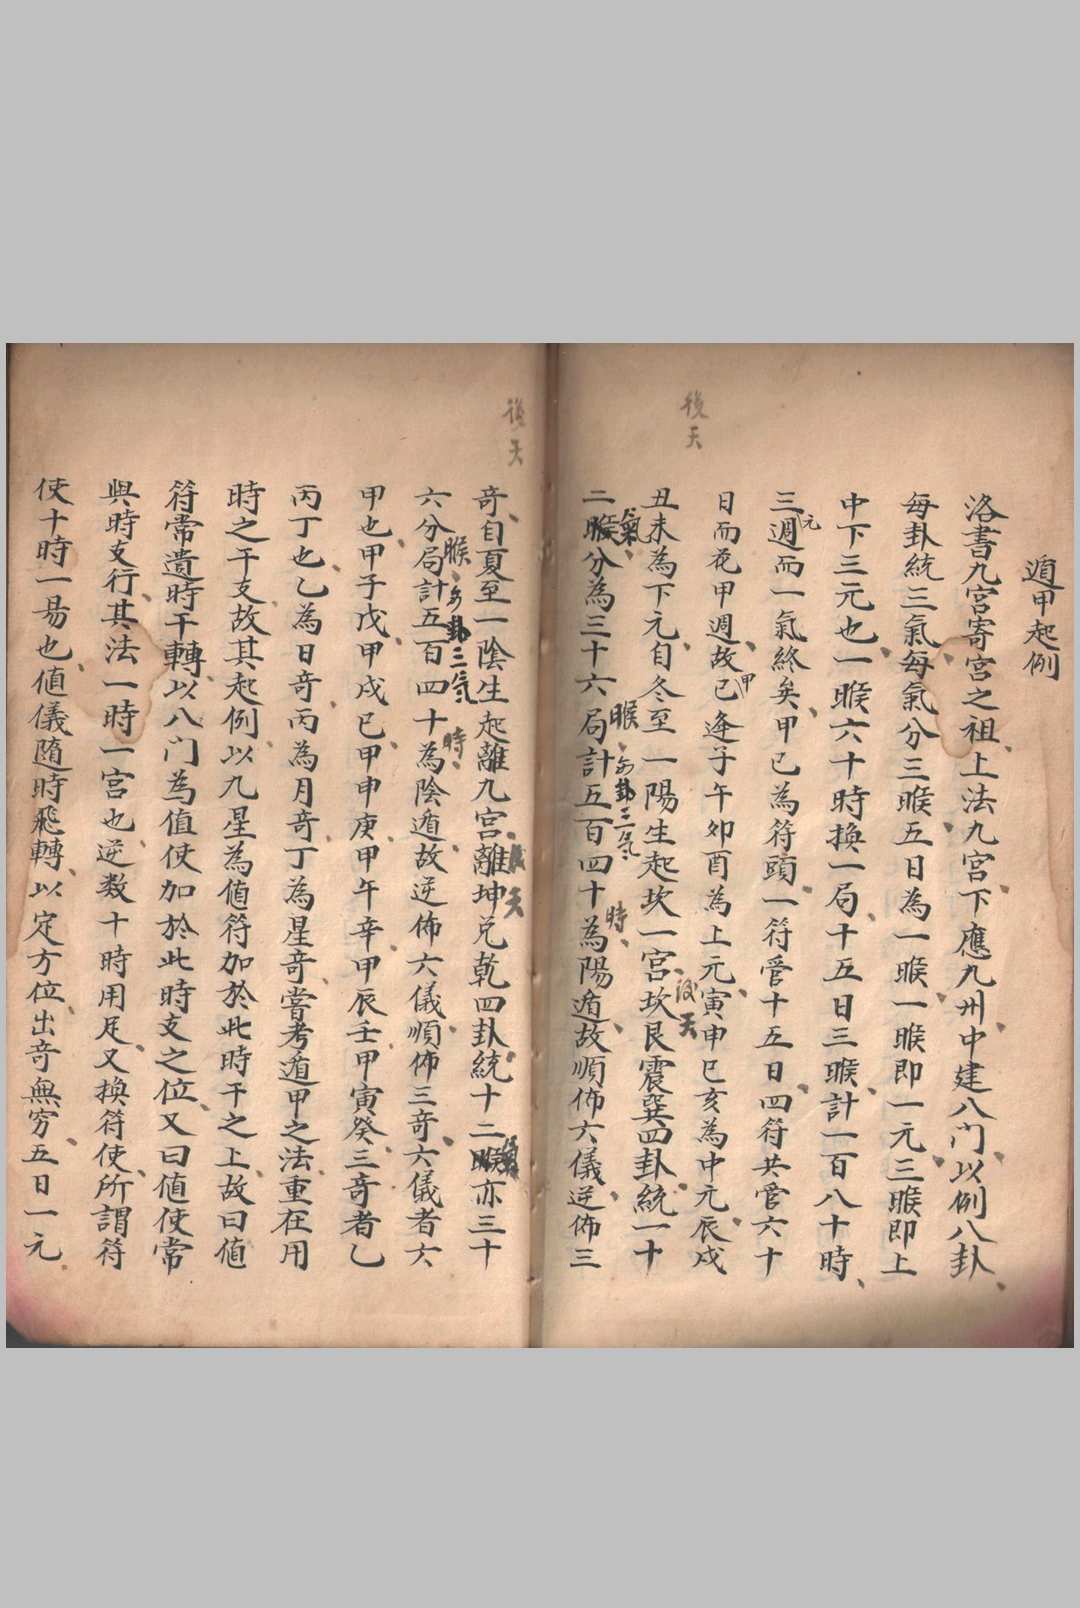 遁甲起例
洛書九宮寄宮之祖上法九宮下應九州中建八门以例八卦
每卦統三氣每氣分三睺五日為一睺一睺即一元三睺即上
中下三元也一睺六十時換一局十五日三睺計一百八十時
三元週而一氣終矣甲己為符頭一符管十五日四符共管六十
日而花甲週故甲己逢子午卯酉為上元寅申巳亥為中元辰戌
後天
丑未為下元自冬至一陽生起坎一宮坎艮震巽四卦統一十
後天
氣
二睺分為三十六局計五百四十為陽遁故順佈六儀逆佈三
睺每卦三氣
時
後天
奇自夏至一陰生起離九宮離坤兌乾四卦統十二睺亦三十
天
氣
六分局計五百四十為陰遁故逆佈六儀順佈三奇六儀者六
睺每卦三氣
時
甲也甲子戊甲戌己甲申庚甲午辛甲辰壬甲寅癸三奇者乙
丙丁也乙為日奇丙為月奇丁為星奇嘗考遁甲之法重在用
時之干支故其起例以九星為值符加於此時干之上故曰值
符常遣時干轉以八门為值使加於此時支之位又曰值使常
與時支行其法一時一宮也逆数十時用足又換符使所謂符
使十時一易也值儀隨時飛轉以定方位出奇無穷五日一元